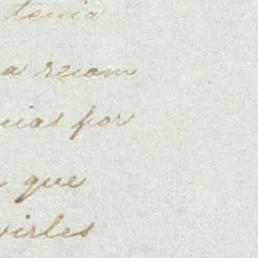 tenia
a recom
cias por
que
virles